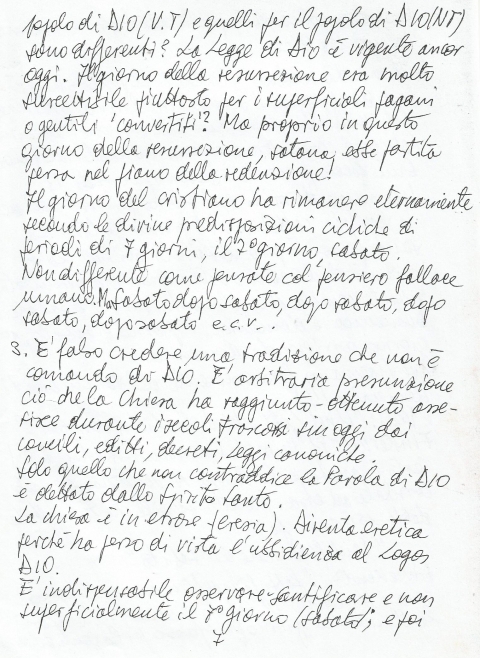 popolo di DIO (V.T) e quelli per il popolo di DIO (NT)
sono differenti? La Legge di Dio è vigente ancor
oggi. Il giorno della resurrezione era molto
piuttosto per i superficiali pagani
o gentili 'convertiti'? Ma proprio in questo
giorno della resurrezione, satana, ebbe partita
persa nel piano della redenzione!
Il giorno del cristiano ha rimanere eternamente
secondo le divine predisposizioni cicliche di
periodi di 7 giorni, il 7° giorno, sabato.
Non differente come pensate col pensiero fallace
umano. Ma sabato dopo sabato, dopo sabato, dopo
sabato, dopo sabato e.c.v...
3. E' falso credere una tradizione che non è
comando di DIO. E' arbitraria presunzione
ciò che la Chiesa ha raggiunto - ottenuto asse-
risce durante i secoli trascorsi sin oggi dai
concili, editti, decreti, leggi canoniche.
Solo quello che non contraddice la Parola di DIO
è dettato dallo Spirito Santo.
La chiesa è in errore (eresia). Diventa eretica
perchè ha perso di vista l'ubbidienza al Logos
DIO.
E' indispensabile osservare-santificare e non
superficialmente il 7° giorno (sabato); e poi
7